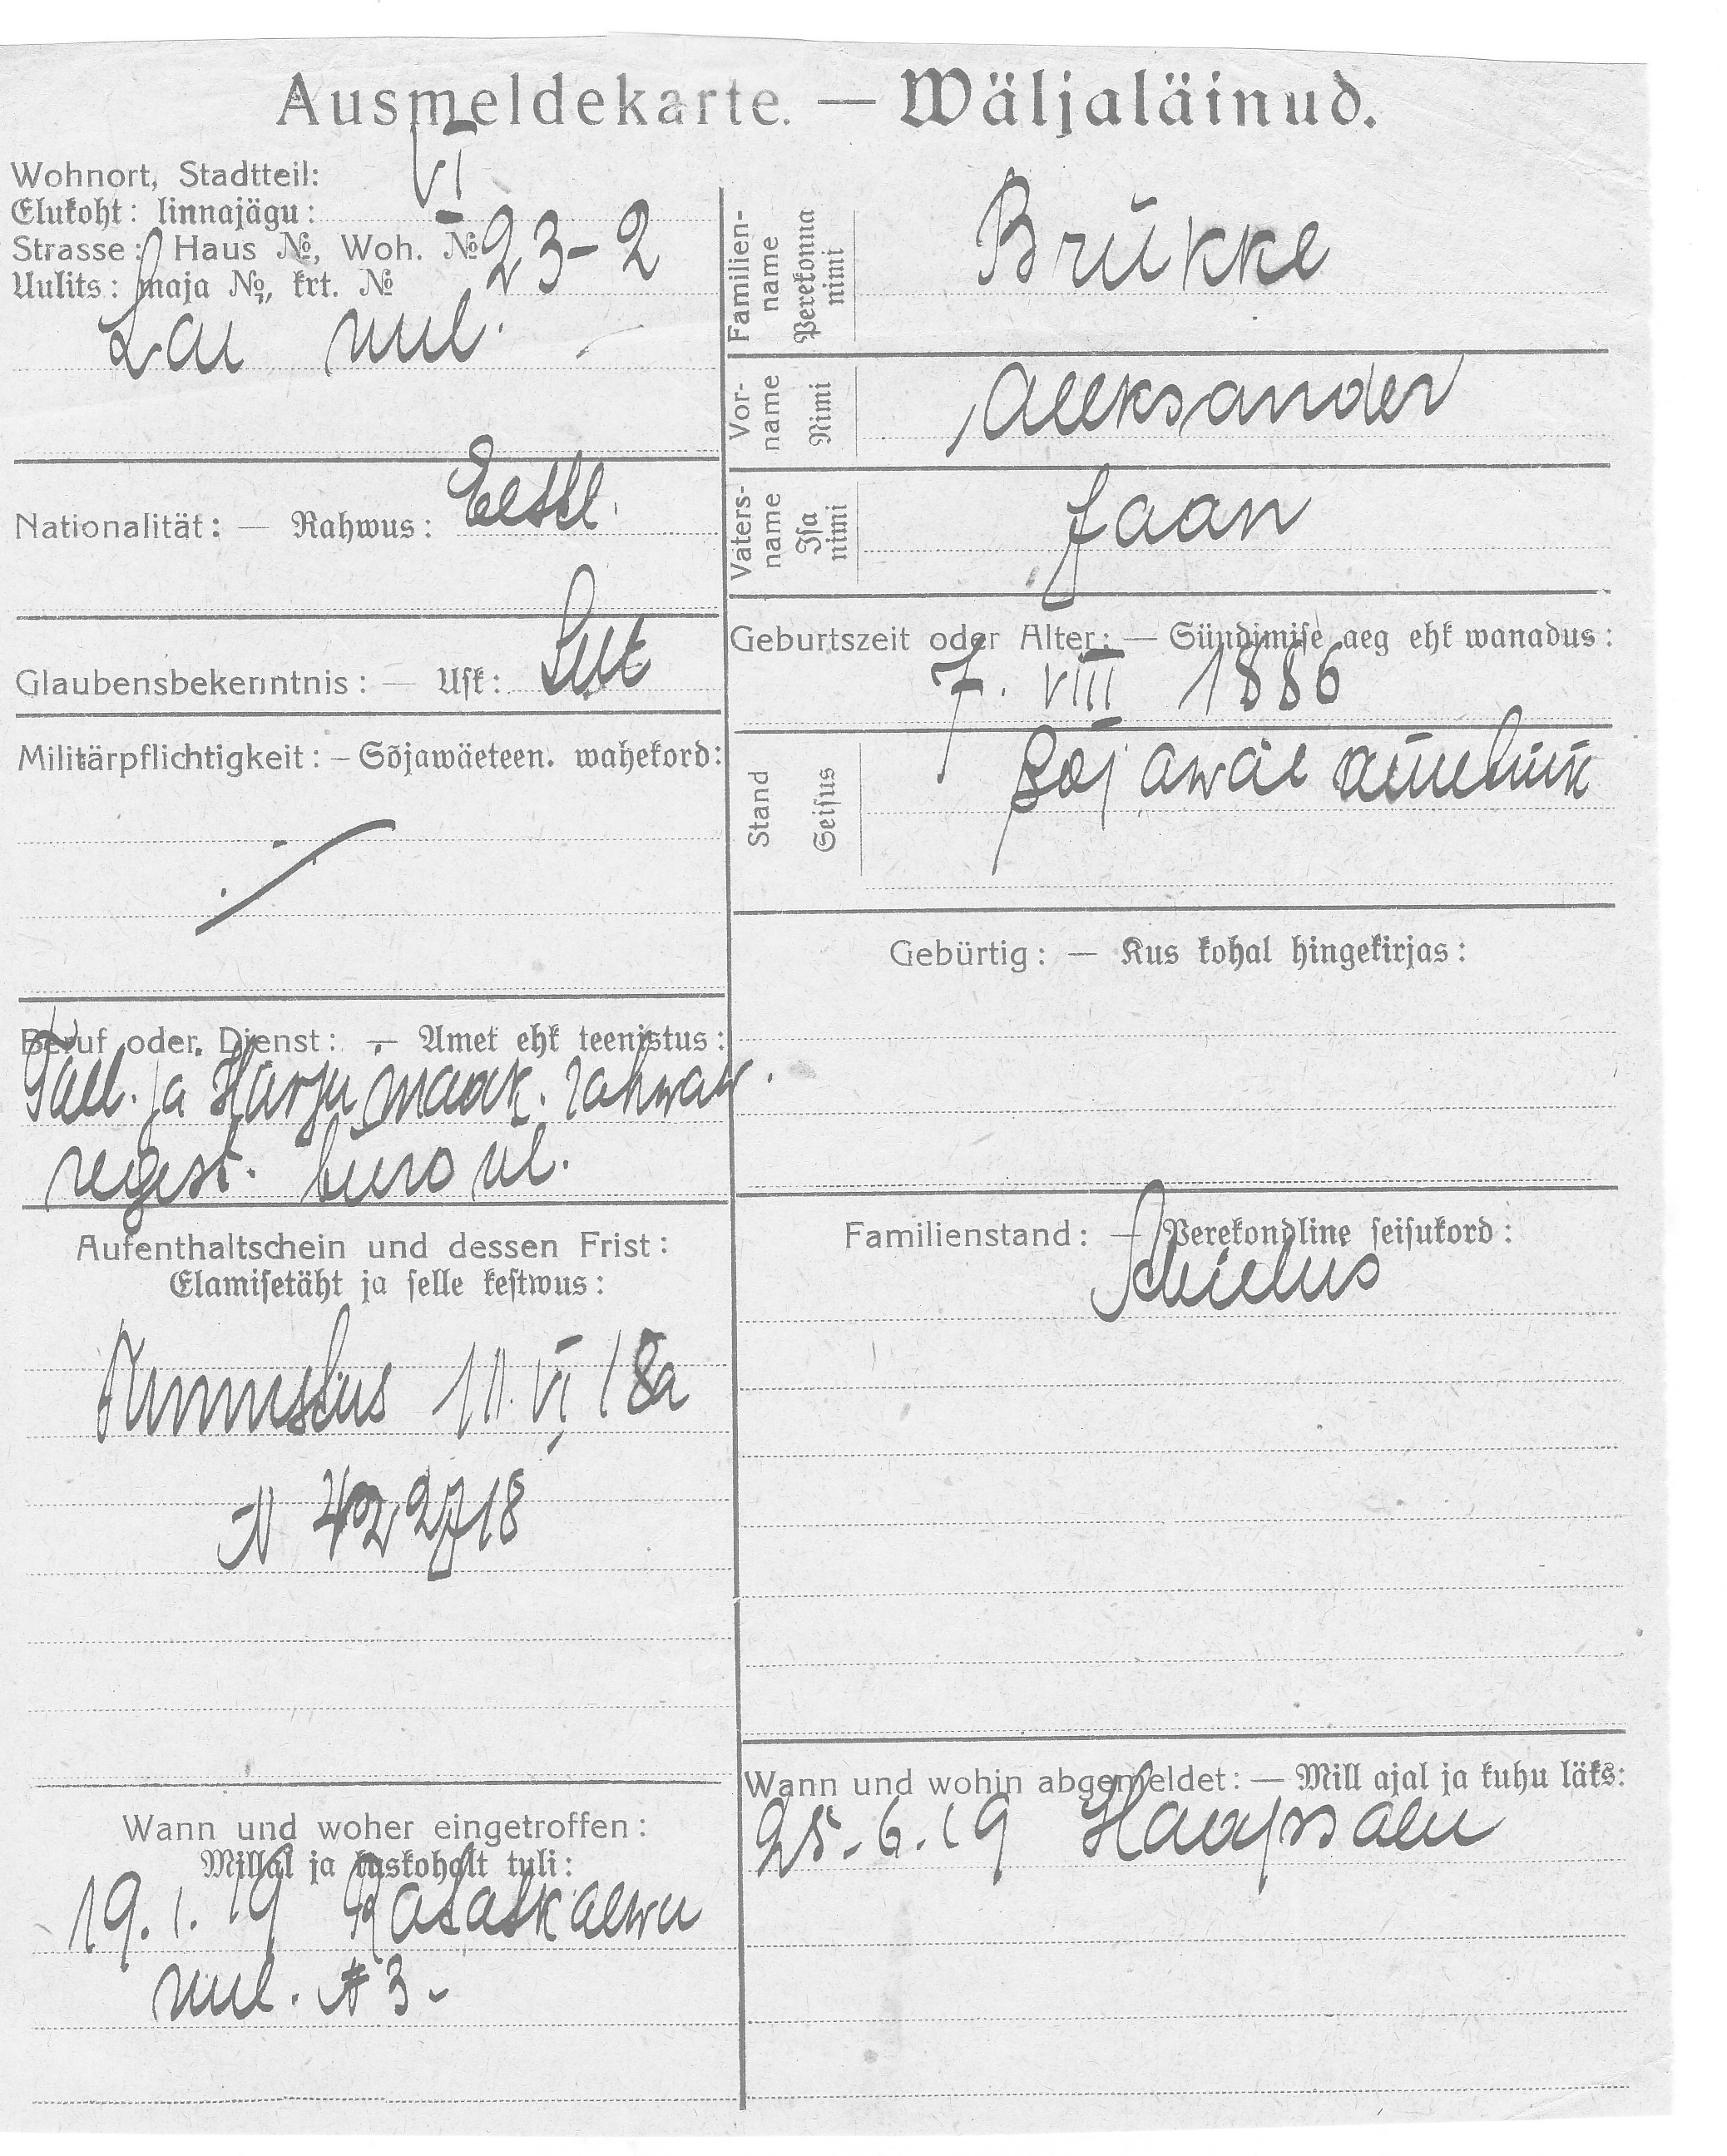 Ausmeldekarte. — Wäljaläinud.
Wohnort, Stadtteil:
Elukoht: linnajägu: VI
Strasse: Haus №, Woh. № 23-2
Uulits: maja №, krt. №
Lai uul.
Nationalität: — Rahwus: Eestl.
Glaubensbekenntnis: — Usk: Lut
Militärpflichtigkeit: — Sõjawäeteen. wahekord:
Beruf oder Dienst: — Amet ehk teenistus:
Tall. ja Harju maak. rahwaw.
regist. büro ül.
Aufenthaltschein und dessen Frist:
Elamisetäht ja selle kestwus:
Tunnistus 11. VI 18a
N 422718
Wann und woher eingetroffen:
Millal ja kuskohalt tuli:
19.1.19 Rataskaewu
uul. № 3-
Familien-
name
Perekonna
nimi
Brükke
Vor-
name
Nimi
Aleksander
Vaters-
name
Isa
nimi
Jaan
Geburtszeit oder Alter: — Sündimise aeg ehk wanadus:
7. VIII 1886
Stand
Seisus
Gebürtig: — Kus kohal hingekirjas:
Familienstand: — Perekondline seisukord:
Wann und wohin abgemeldet: — Mill ajal ja kuhu läks:
25.6.19 Haapsalu